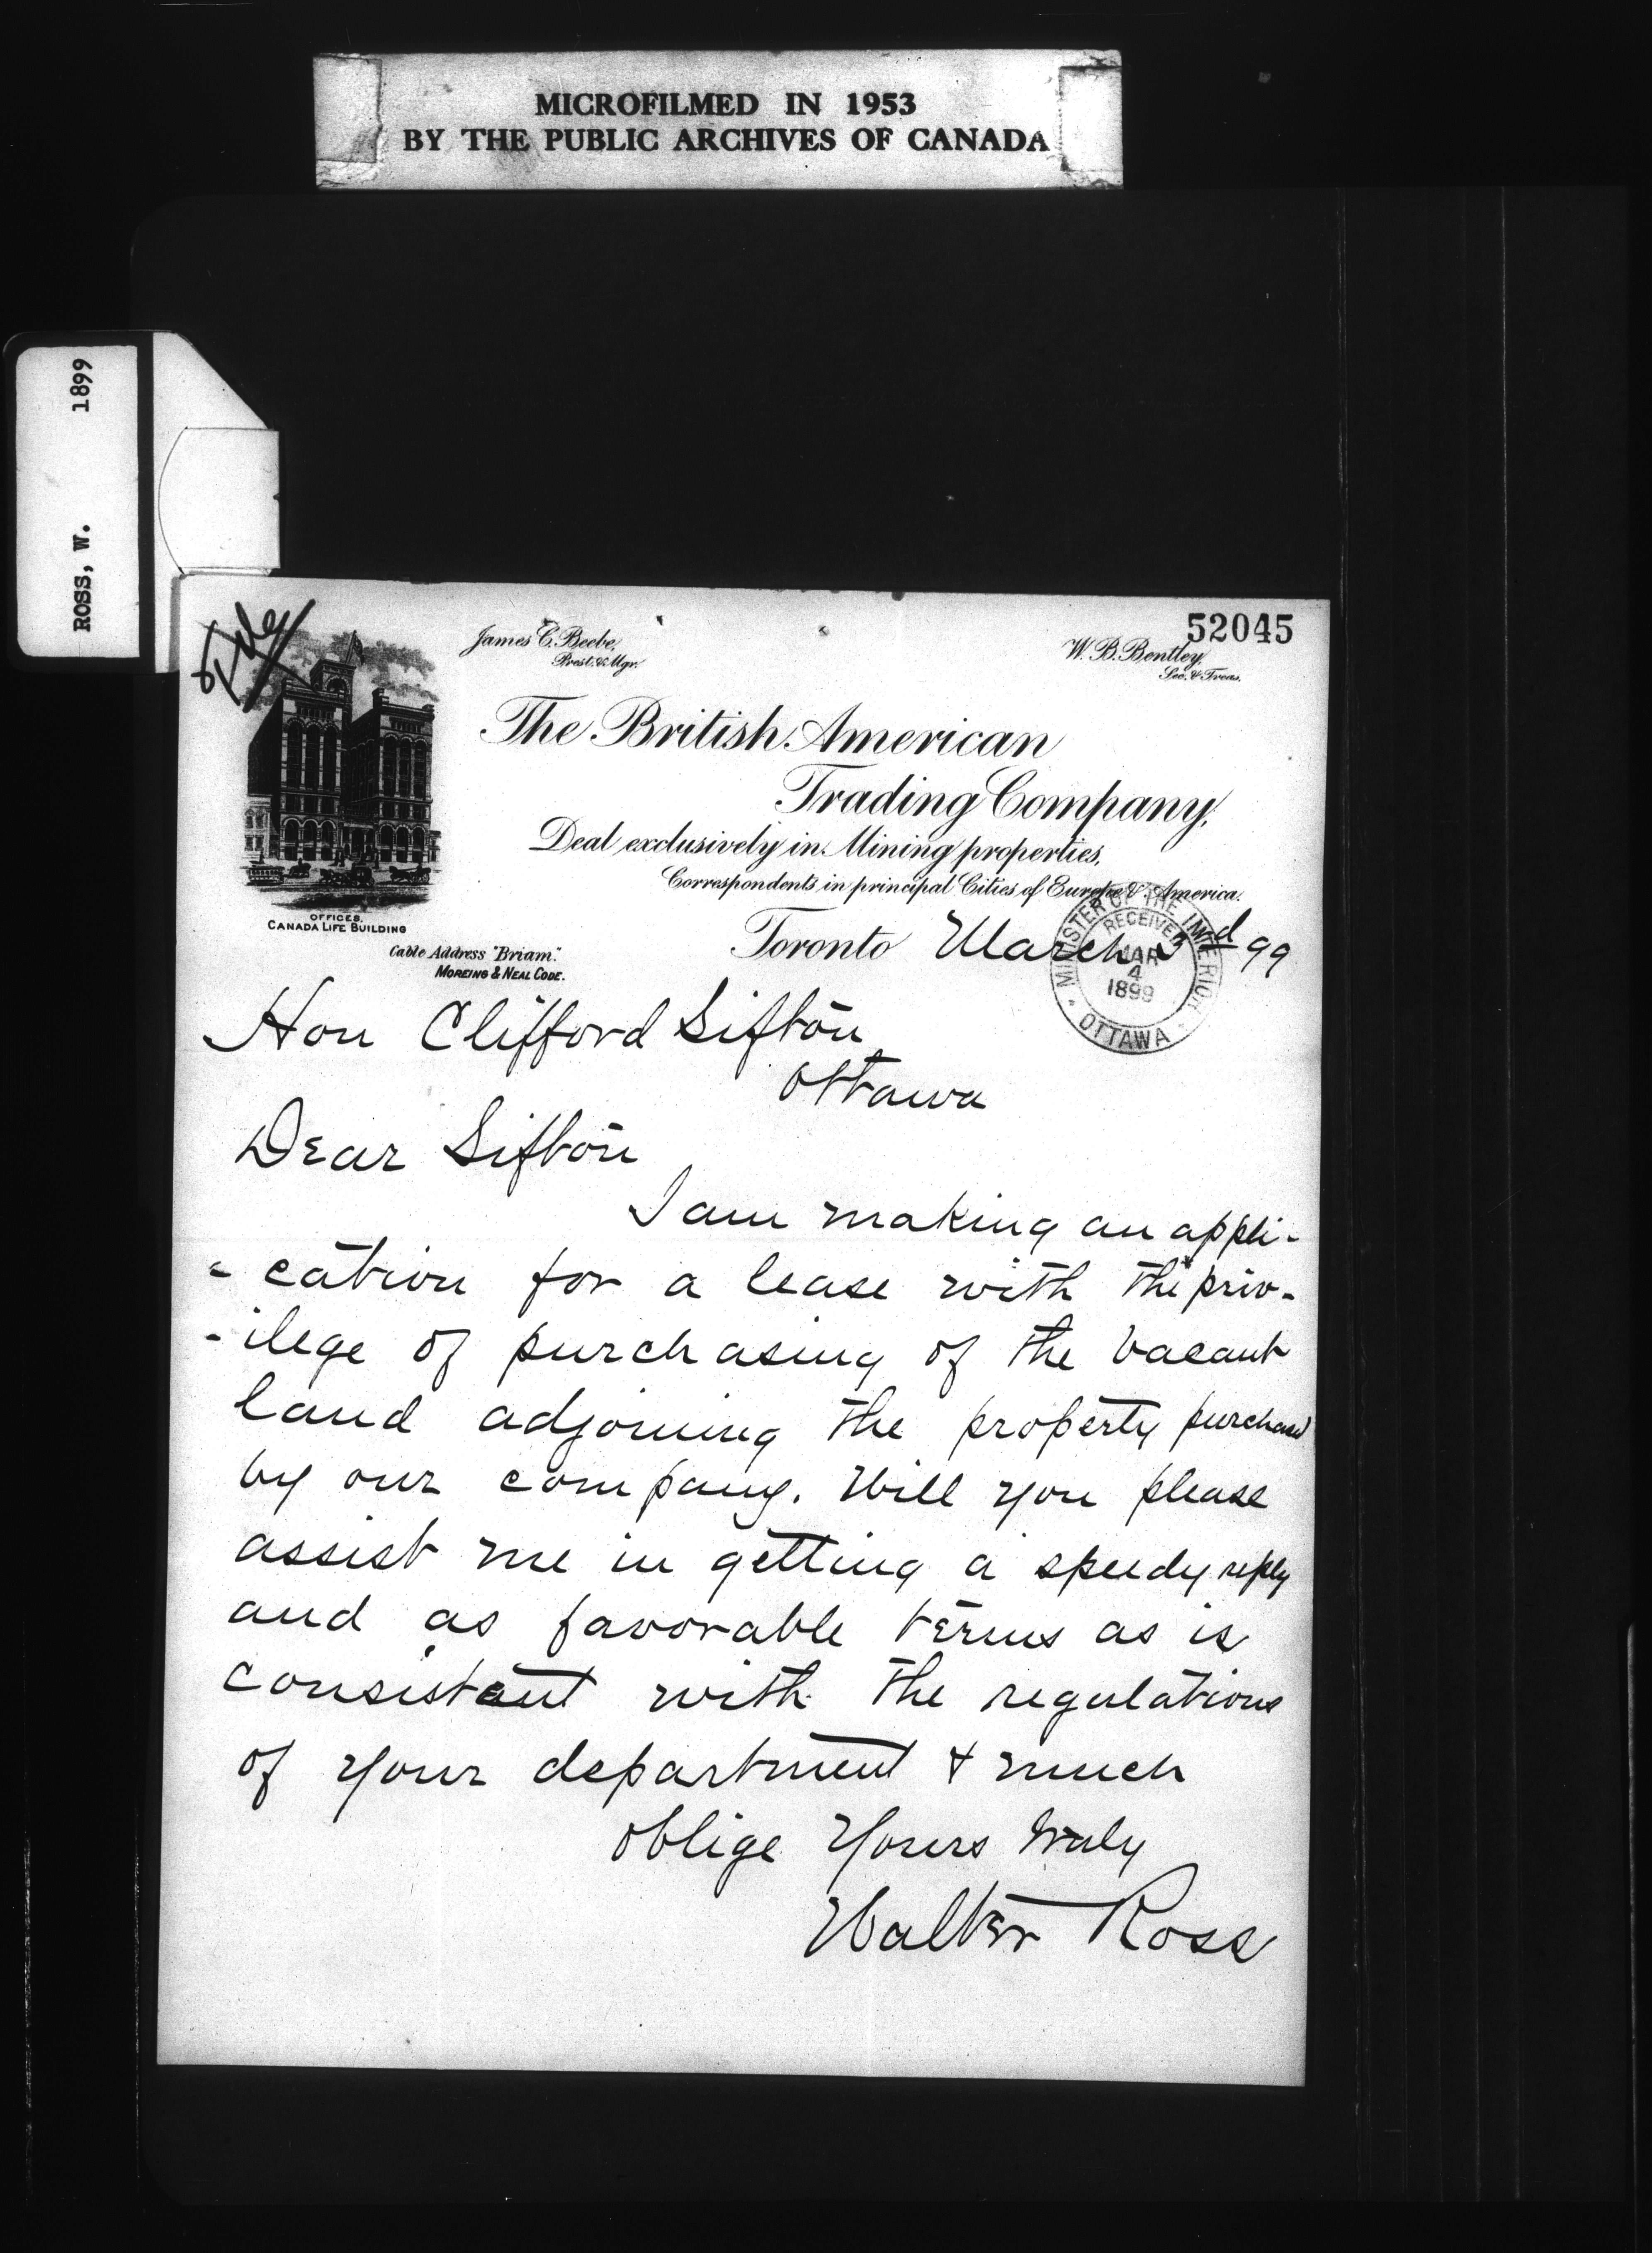 MICROFILMED IN 1953
BY THE PUBLIC ARCHIVES OF CANADA
ROSS, W. 1899
File
52045
James C. Beebe,
Prest. & Mgr.
W. B. Bentley,
Sec. & Treas.
The British American
Trading Company,
Deal exclusively in Mining properties,
Correspondents in principal Cities of Europe & America.
OFFICES,
CANADA LIFE BUILDING
Cable Address "Briam."
MOREING & NEAL CODE.
Toronto March 3d 99
MINISTER OF THE INTERIOR
RECEIVED
MAR
4
1899
OTTAWA
Hon Clifford Sifton
Ottawa
Dear Sifton
I am making an appli-
- cation for a lease with the priv-
- ilege of purchasing of the vacant
land adjoining the property purchased
by our company. Will you please
assist me in getting a speedy reply
and as favorable terms as is
consistent with the regulations
of your department & much
oblige Yours truly
Walter Ross